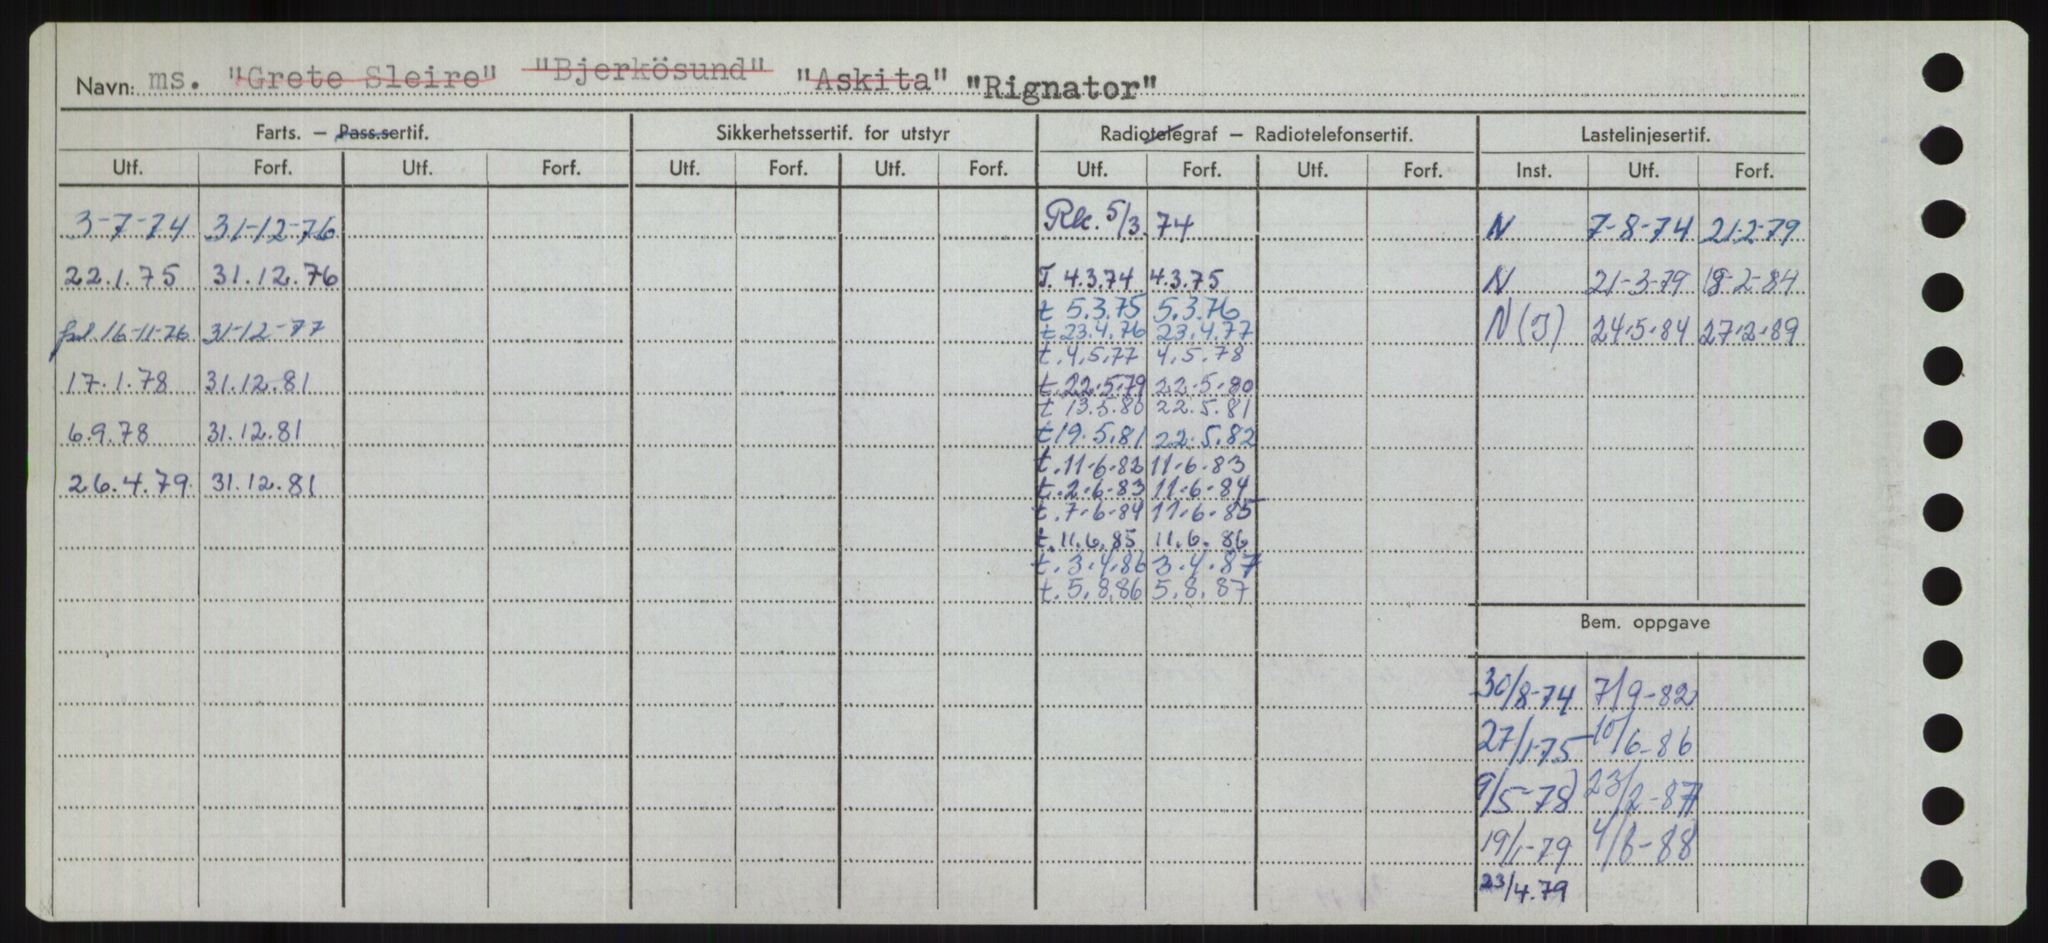 Navn: ms. "Grete Sleire" "Bjerkösund" "Askita" "Rignator"
Farts. – Pass.sertif. Sikkerhetssertif. for utstyr Radiotelegraf – Radiotelefonsertif. Lastelinjesertif.
Utf. Forf. Utf. Forf. Utf. Forf. Utf. Forf. Utf. Forf. Utf. Forf. Inst. Utf. Forf.
3-7-74 31-12-76 Rk. 5/3. 74 N 7-8-74 21-2-79
22.1.75 31.12.76 T. 4.3.74 4.3.75 N 21-3-79 19-2-84
t 5.3.75 5.3.76
16-11-76 31-12-77 t 23.4.76 23.4.77 N (I) 24.5.84 27.2.89
t. 4.5.77 4.5.78
17.1.78 31.12.81 t. 22.5.79 22.5.80
t 13.5.80 22.5.81
6.9.78 31.12.81 t 19.5.81 22.5.82
t. 11.6.82 11.6.83
26.4.79 31.12.81 t. 2.6.83 11.6.84
t. 7-6-84 11.6.85
t. 11.6.85 11.6.86
t. 3.4.86 3.4.87
t. 5.8.86 5.8.87
Bem. oppgave
30/8-74 7/9-82
27/1-75 10/6-86
9/5-78 23/2-87
19/1-79 4/6-88
23/4.79